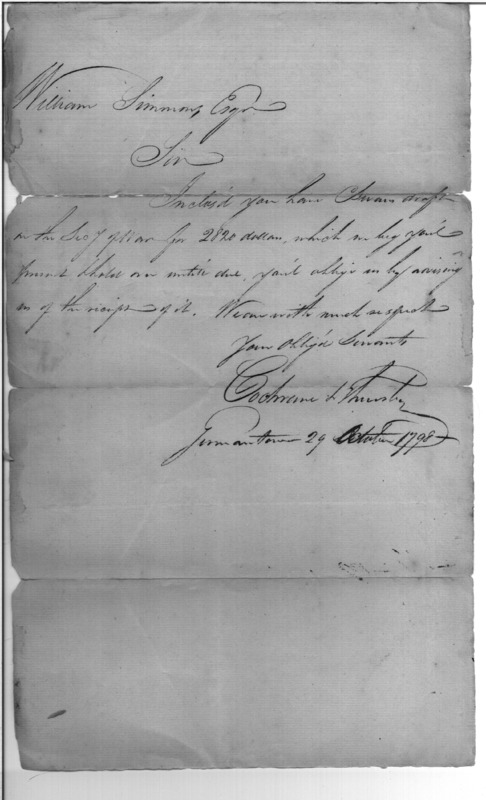 William Simmons, Esqr
Sir
Inclos'd you have Swan draft
on the Secy of War for 2820 dollars, which we beg you'l
hold over untill due, you'l oblige us by advising
us of the receipt of it. We are with much respect
Your Oblig'd Servants
Cochrane & Thursby
Germantown 29 October 1798